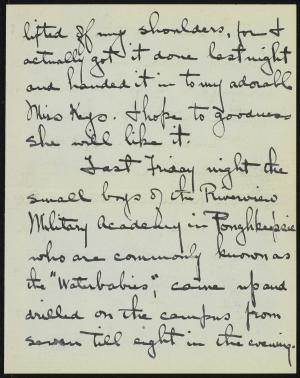 lifted of my shoulders, for I
actually got it done last night
and handed it in to my adorable
Miss Keys. I hope to goodness
she will like it.
Last Friday night the
small boys of the Riverview
Military Academy in Poughkeepsie
who are commonly known as
the "Waterbabies", came up and
drilled on the campus from
seven till eight in the evening.